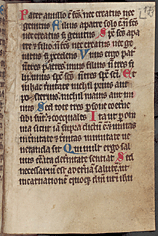 Pater a nullo est factus nec creatus nec
genitus Filius a patre solo est non factus
nec creatus sed genitus Sps scs a pa
tre et filio non factus nec creatus nec ge
nitus sed procedens Unus ergo pater
non tres patres unus filius non tres fi
lii unus sps scs non tres sps sci Et
in hac trinitate nichil prius aut pos
terius nichil maius aut mi
nus Sed tote tres persone coeter
ne sibi sunt et coequales Ita ut per om
nia sicut iam supra dictum est et unitas
in trinitate et trinitas in unitate
veneranda sit Qui vult ergo sal
vus esse ita de trinitate sentiat Sed
necessarium est ad eternam salutem ut
incarnationem quoque dni nri iesu